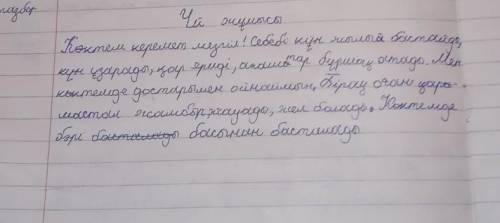 разбор
Үй жұмысы
Көктем керемет мезгіл! Себебі күн жылый бастайды,
күн ұзарады, қар ериді, ағаштар бүршік атады. Мен
көктемде достарыммен ойнаймын. Бірақ оған қара-
мастан жаңбыр жауады, жел болады. Көктемде
бәрі басталады басынан басталады